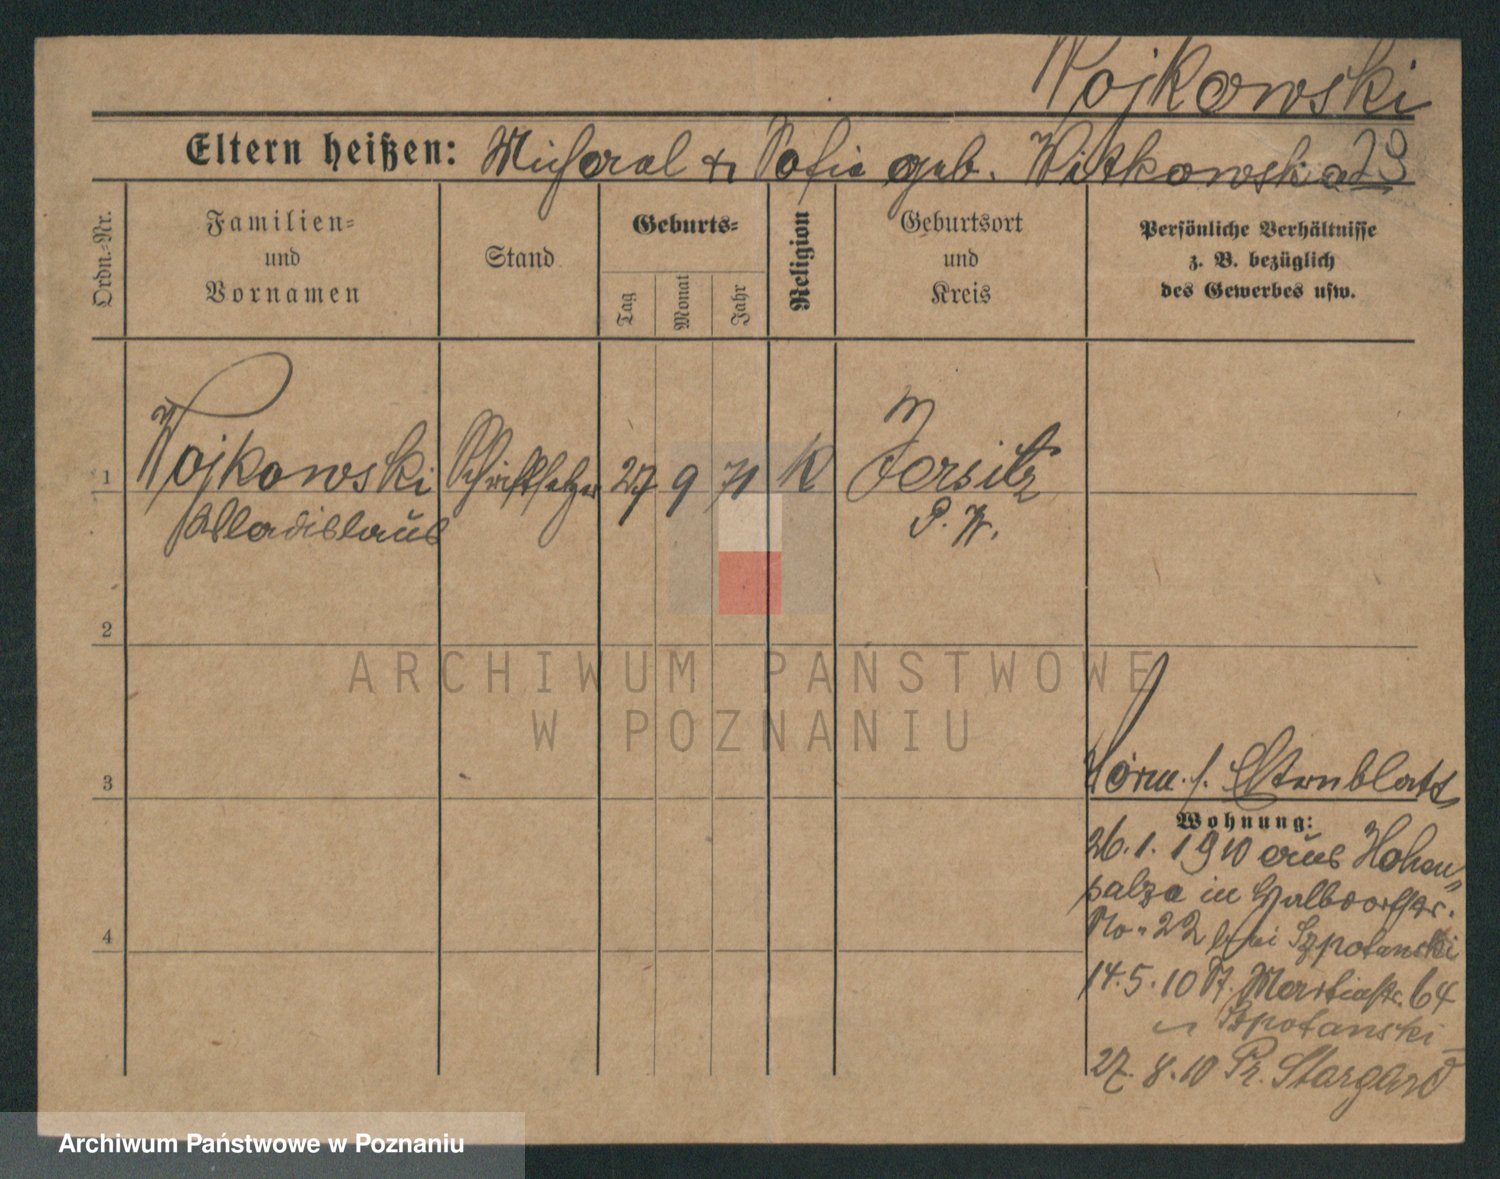 Wojkowski
Eltern heißen: Michael & Sofie geb. Witkowska
Ordn.-Nr.
Familien-
und
Vornamen
Stand
Geburts-
Tag
Monat
Jahr
Religion
Geburtsort
und
Kreis
Persönliche Verhältnisse
z. B. bezüglich
des Gewerbes usw.
1
Wojkowski Schriftsetzer 27 9 71 K Jersitz
Wladislaus P. W.
2
ARCHIWUM PAŃSTWOWE
W POZNANIU
3
s. Elternblatt
Wohnung:
26.1.1910 aus Hohen-
salza in Halbdorfstr.
No. 22 bei Szpotanski
4
14.5.10 St. Martinstr. 64
Szpotanski
27.8.10 Pr. Stargard
Archiwum Państwowe w Poznaniu